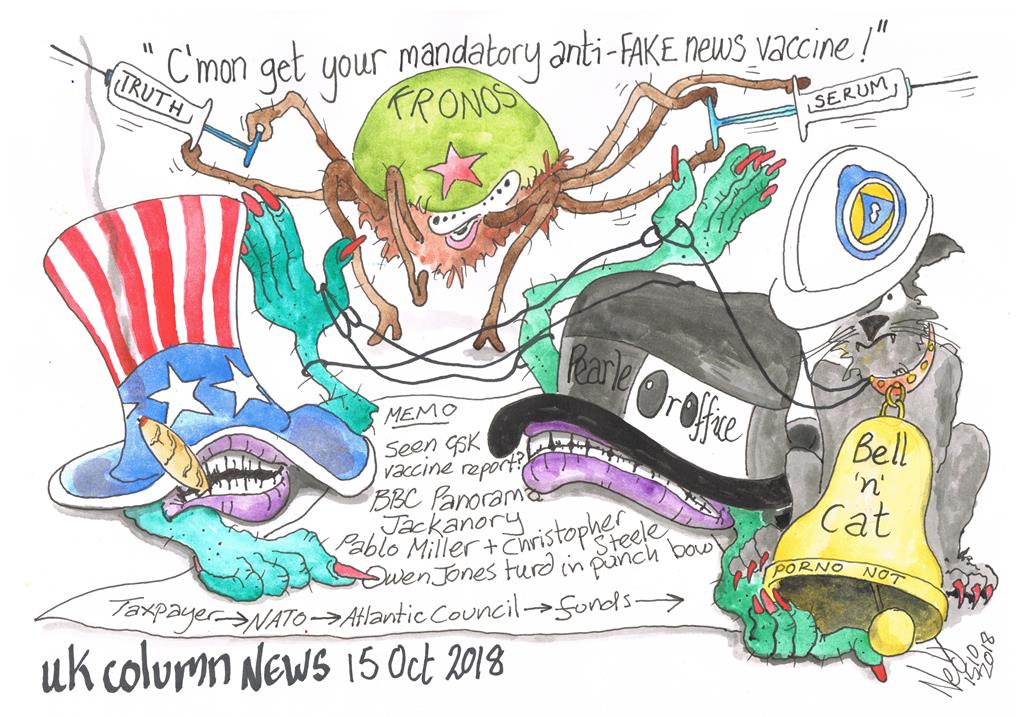 "C'mon get your mandatory anti-FAKE news vaccine!"
TRUTH
KRONOS
SERUM
Pearle
Or Office
MEMO
Seen GSK
vaccine report?
BBC Panorama
Jackanory
Pablo Miller + Christopher
Steele
Owen Jones turd in punch bowl
Taxpayer → NATO → Atlantic Council → funds →
Bell
'n'
Cat
PORNO NOT
uk column News 15 Oct 2018
15-10
2018